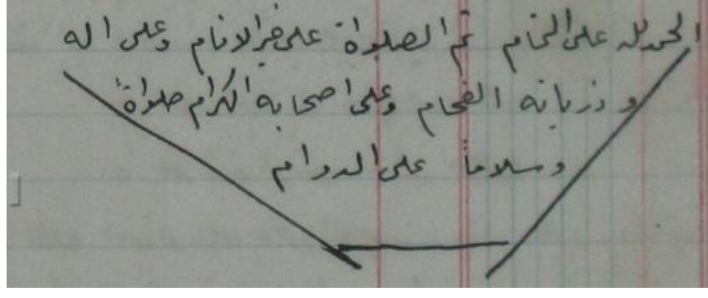 الحمدلله على التمام ثم الصلواة على خير الانام وعلى اله
و ذرياته الفخام وعلى اصحابه الكرام صلواةً
وسلاماً على الدوام